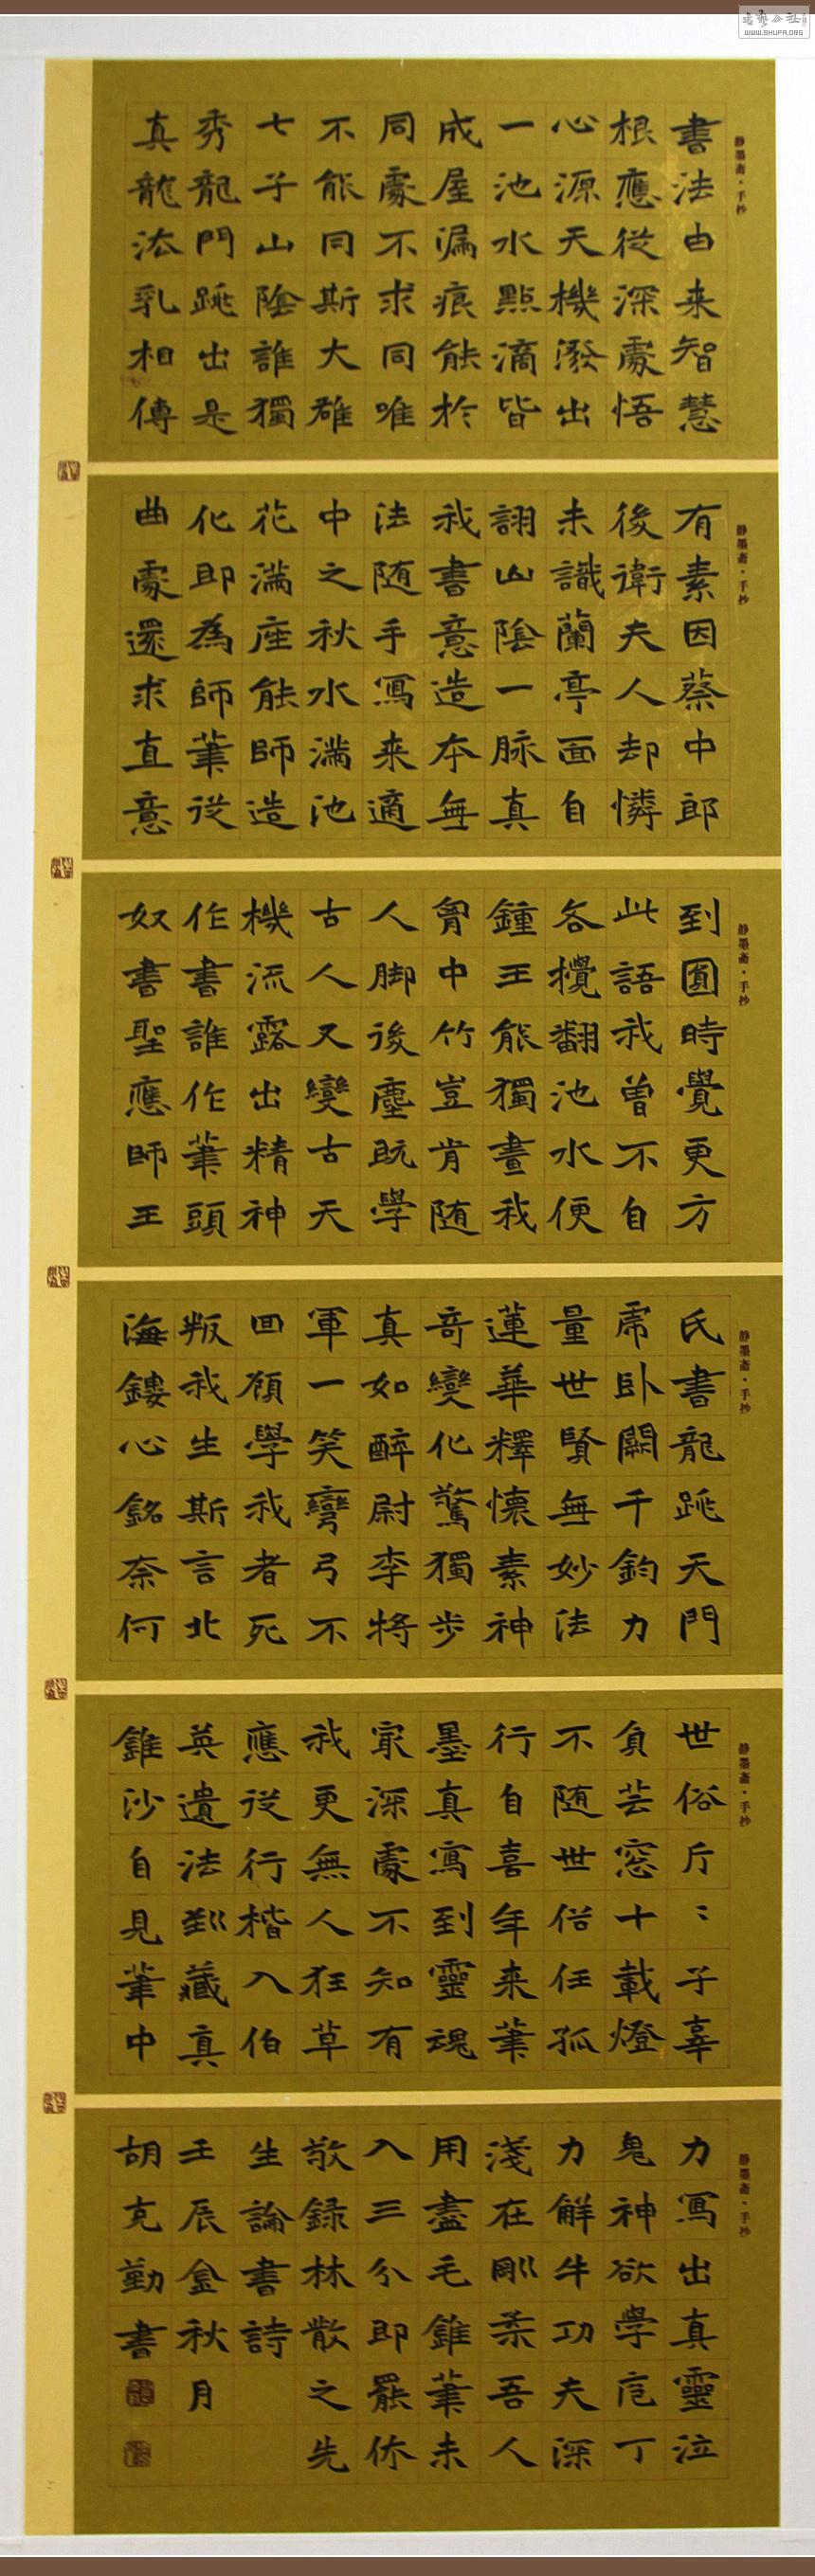 WWW.SHUFA.ORG
静墨斋·手抄
書法由来智慧
根應從深處悟
心源天機潑出
一池水點滴皆
成屋漏痕能於
同處不求同唯
不能同斯大雄
七子山陰誰獨
秀龍門跳出是
真龍法乳相傳
静墨斋·手抄
有素因蔡中郎
後衛夫人却憐
未識蘭亭面自
詡山陰一脉真
我書意造本無
法随手寫来適
中之秋水满池
花满座能師造
化即為師筆從
曲處還求直意
静墨斋·手抄
到圓時覺更方
此語我曾不自
各攪翻池水便
鍾王能獨畫我
胷中竹豈肯随
人脚後塵既學
古人又變古天
機流露出精神
作書誰作筆頭
奴書聖應師王
静墨斋·手抄
氏書龍跳天門
虎卧闕千鈞力
量世賢無妙法
蓮華釋懷素神
奇變化驚獨步
真如醉尉李将
軍一笑彎弓不
回顧學我者死
叛我生斯言北
海鏤心銘奈何
静墨斋·手抄
世俗斤〻子辜
負芸窓十載燈
不随世俗任孤
行自喜年来筆
墨真寫到靈魂
家深處不知有
我更無人狂草
應從行楷入伯
英遺法到藏真
錐沙自見筆中
静墨斋·手抄
力寫出真靈泣
鬼神欲學庖丁
力解牛功夫深
淺在剛柔吾人
用盡毛錐筆未
入三分即罷休
敬録林散之先
生論書詩
壬辰金秋月
胡克勤書